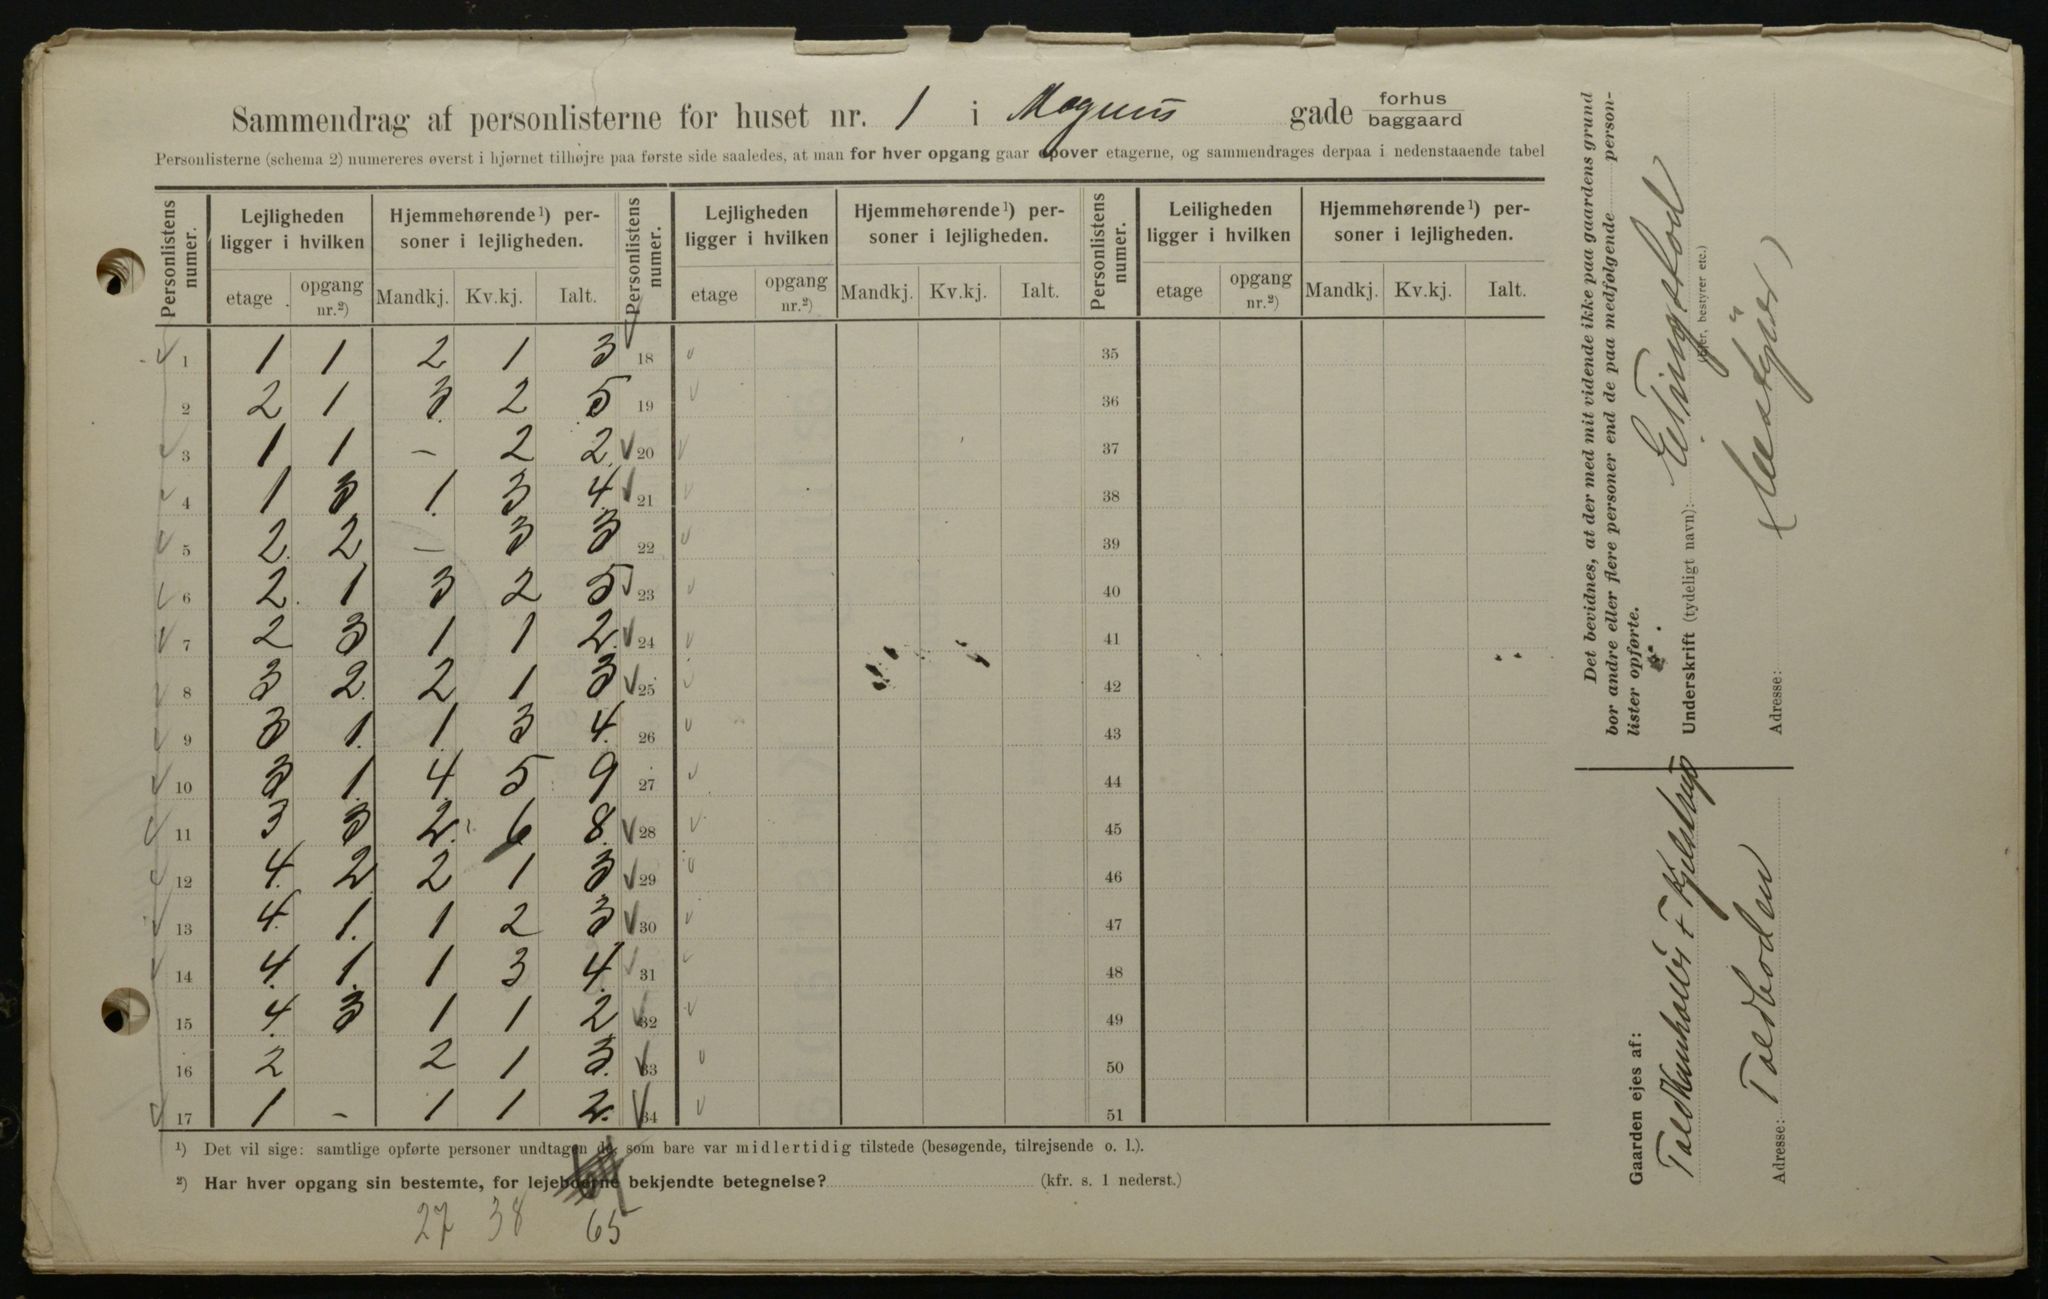 Sammendrag af personlisterne for huset nr. 1 i Magnus gade forhus baggaard
Personlisterne (schema 2) numereres øverst i hjørnet tilhøjre paa første side saaledes, at man for hver opgang gaar opover etagerne, og sammendrages derpaa i nedenstaaende tabel
Personlistens numer. Lejligheden ligger i hvilken Hjemmehørende¹) personer i lejligheden. Personlistens numer. Lejligheden ligger i hvilken Hjemmehørende¹) personer i lejligheden. Personlistens numer. Leiligheden ligger i hvilken Hjemmehørende¹) personer i lejligheden.
etage opgang nr.²) Mandkj. Kv.kj. Ialt. etage opgang nr.²) Mandkj. Kv.kj. Ialt. etage opgang nr.²) Mandkj. Kv.kj. Ialt.
1 1 1 2 1 3 18 35
2 2 1 3 2 5 19 36
3 1 1 – 2 2 20 37
4 1 3 1 3 4 21 38
5 2 2 – 3 3 22 39
6 2 1 3 2 5 23 40
7 2 3 1 1 2 24 41
8 3 2 2 1 3 25 42
9 3 1 1 3 4 26 43
10 3 1 4 5 9 27 44
11 3 3 2 6 8 28 45
12 4 2 2 1 3 29 46
13 4 1 1 2 3 30 47
14 4 1 1 3 4 31 48
15 4 3 1 1 2 32 49
16 2 2 1 3 33 50
17 1 – 1 1 2 34 51
¹) Det vil sige: samtlige opførte personer undtagen de, som bare var midlertidig tilstede (besøgende, tilrejsende o. l.).
²) Har hver opgang sin bestemte, for lejeboerne bekjendte betegnelse? (kfr. s. 1 nederst.)
27 38 65
Det bevidnes, at der med mit vidende ikke paa gaardens grund
bor andre eller flere personer end de paa medfølgende person-
lister opførte.
Underskrift (tydeligt navn): E. Tingstod
(Ejer, bestyrer etc.)
Adresse:
Gaarden ejes af:
& Kjelstrup
Adresse: Toldboden